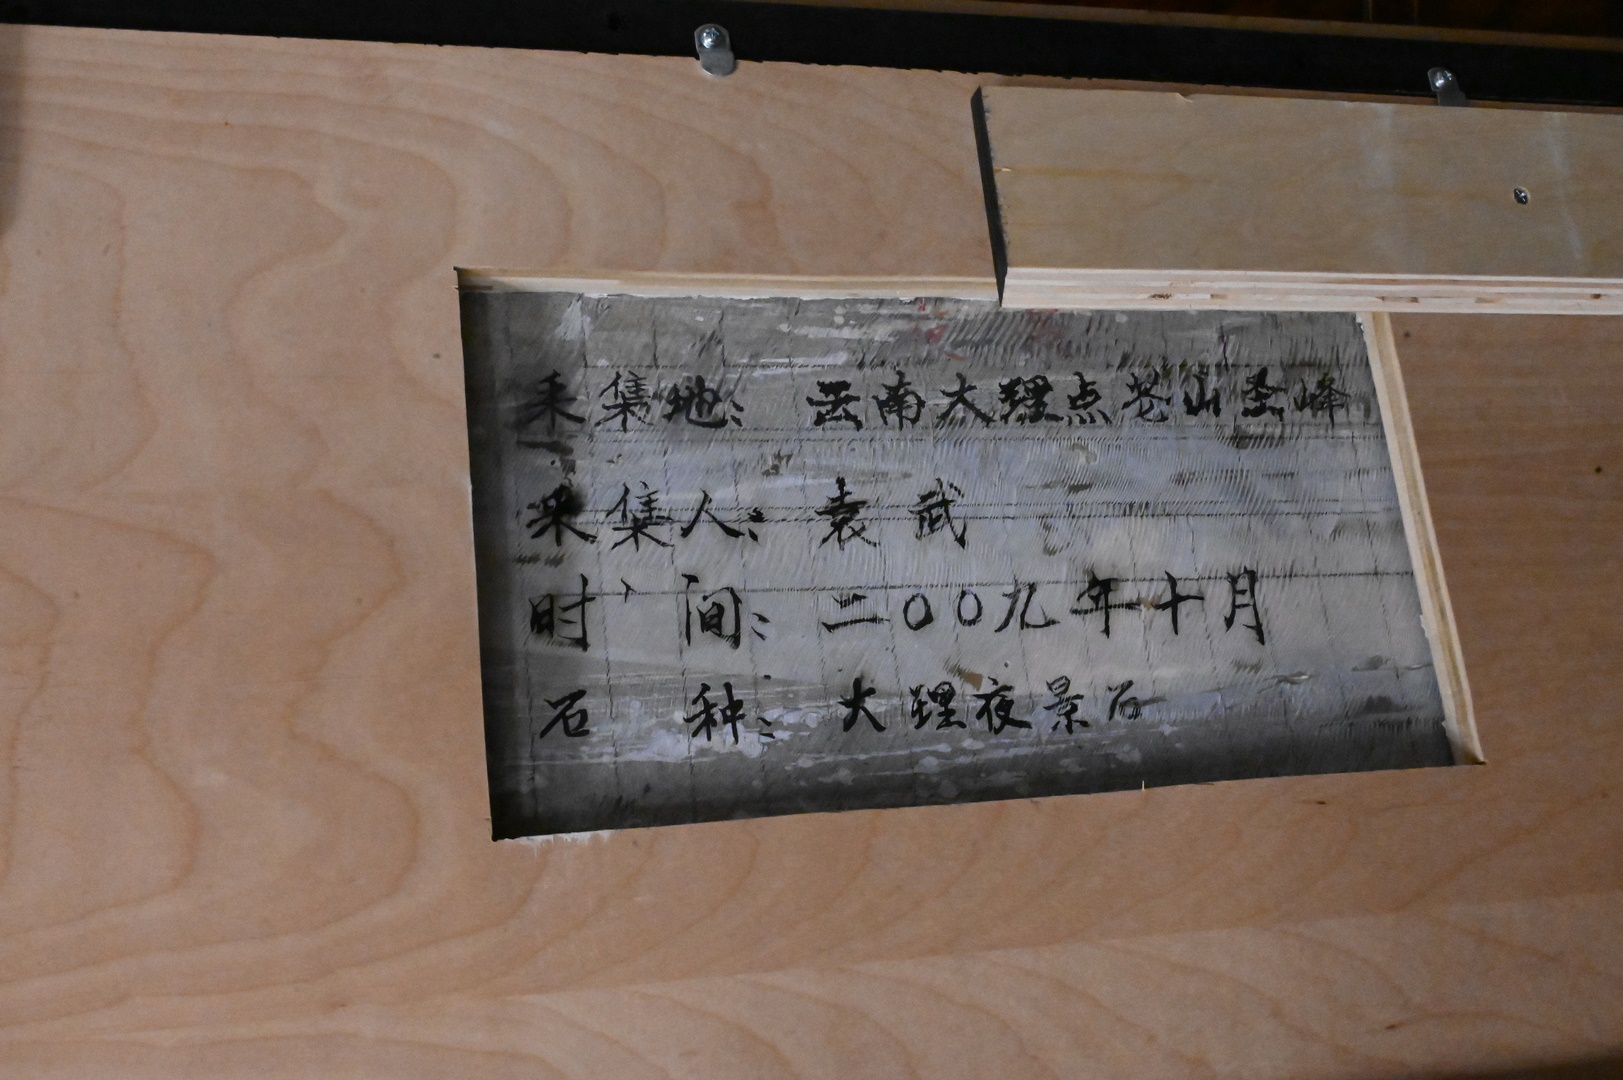 采集地：云南大理点苍山圣峰
采集人：袁武
时间：二〇〇九年十月
石种：大理夜景石